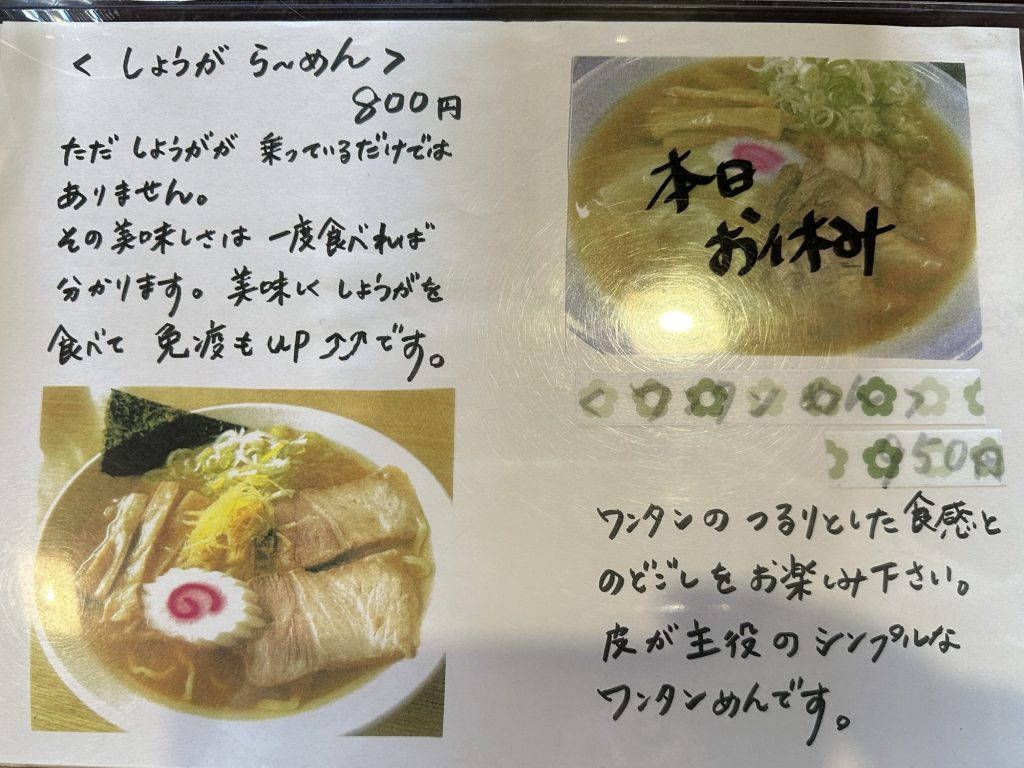 ＜しょうが ら〜めん＞
800円
ただ しょうがが 乗っているだけでは
ありません。
その美味しさは 一度食べれば
分かります。美味しくしょうがを
食べて 免疫もup↑↑です。
本日
お休み
＜ワンタンめん＞
950円
ワンタンの つるりとした食感と
のどごしを お楽しみ下さい。
皮が主役の シンプルな
ワンタンめんです。